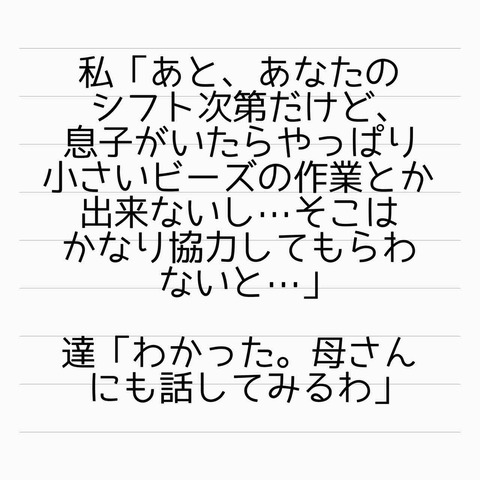 私「あと、あなたの
シフト次第だけど、
息子がいたらやっぱり
小さいビーズの作業とか
出来ないし…そこは
かなり協力してもらわ
ないと…」
達「わかった。母さん
にも話してみるわ」